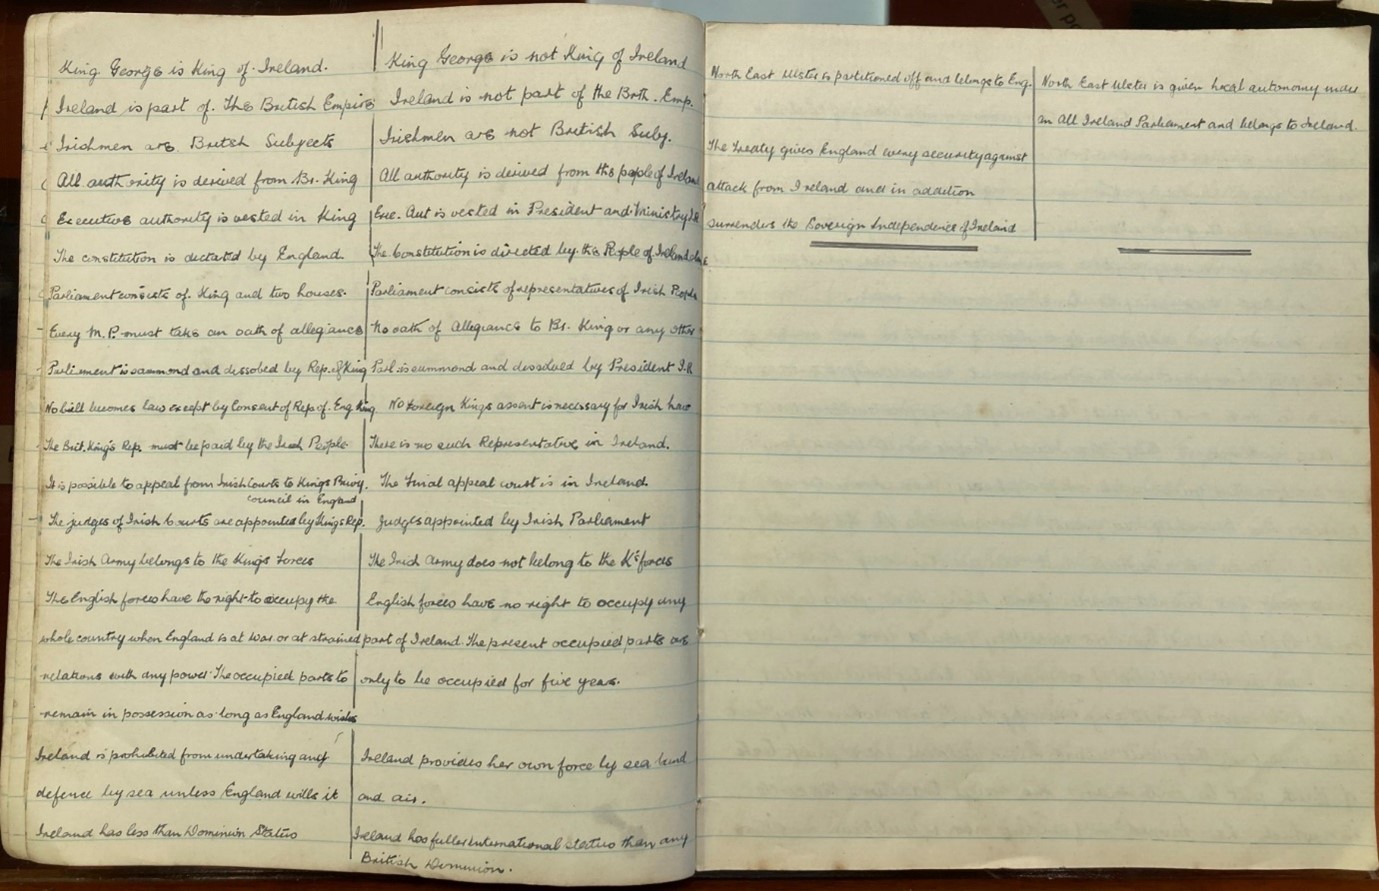 King George is King of Ireland.
King George is not King of Ireland
Ireland is part of. The British Empire
Ireland is not part of the Brth. Emp.
Irishmen are British Subjects
Irishmen are not British Subj.
All authority is derived from Br. King
All authority is derived from the people of Ireland
Executive authority is vested in King
Exe. Aut is vested in President and Ministry I.R
The constitution is dictated by England.
The Constitution is directed by the People of Ireland
Parliament consists of King and two houses.
Parliament consists of representatives of Irish People
Every M.P. must take an oath of allegiance
No oath of Allegiance to Br. King or any other
Parliament is summond and dissobed by Rep. of King
Parl. is summond and dissolved by President I.R
No bill becomes law except by Consent of Rep. of. Eng King
No foreign Kings assent is necessary for Irish law
The Brit. King's Rep. must be paid by the Irish People
There is no such Representative in Ireland.
It is possible to appeal from Irish Courts to Kings Privy
council in England
The final appeal court is in Ireland
The judges of Irish Courts are appointed by Kings Rep.
Judges appointed by Irish Parliament
The Irish Army belongs to the King's Forces
The Irish Army does not belong to the K's forces
The English forces have the right to occupy the
English forces have no right to occupy any
whole country when England is at war or at strained
part of Ireland. The present occupied parts are
relations with any power. The occupied parts to
only to be occupied for five years.
remain in possession as long as England wishes
Ireland is prohibited from undertaking any
Ireland provides her own force by sea land
defence by sea unless England wills it
and air.
Ireland has less than Dominion Status
Ireland has fuller international status than any
British Dominion.
North East Ulster is partitioned off and belongs to Eng.
North East Ulster is given local autonomy under
an All Ireland Parliament and belongs to Ireland.
The Treaty gives England every security against
attack from Ireland and in addition
surrenders the Sovereign Independence of Ireland